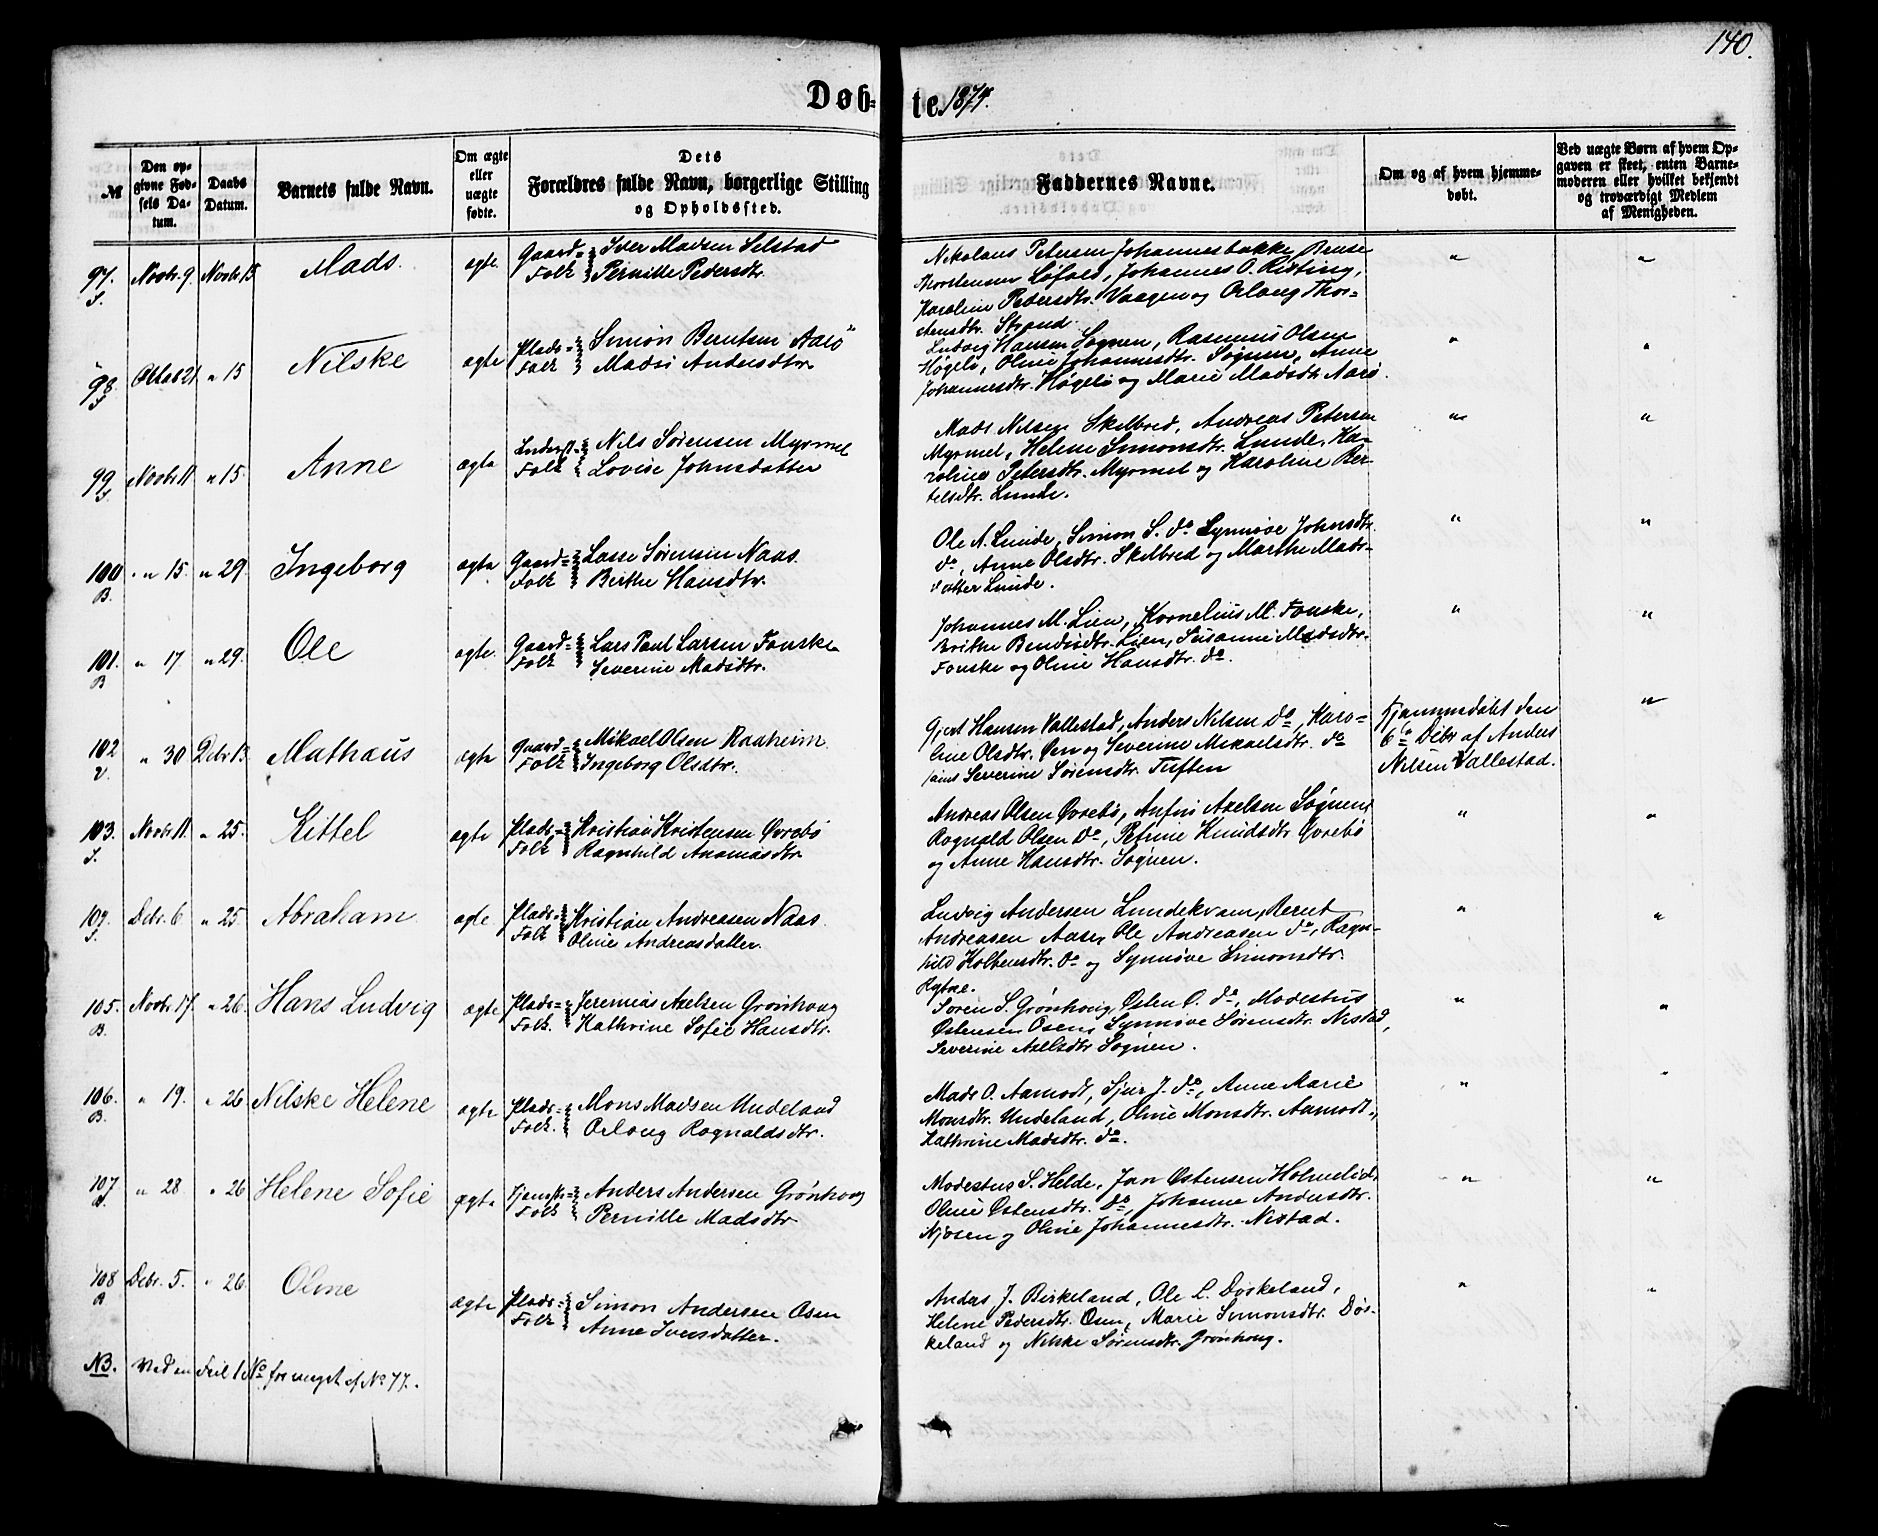 140.
Døb-te 1874.
№
Den op-
givne Fød-
sels Da-
tum.
Daabs
Datum.
Barnets fulde Navn.
Om ægte
eller
uægte
fødte.
Dets
Forældres fulde Navn, borgerlige Stilling
og Opholdssted.
Faddernes Navne.
Om og af hvem hjemme-
døbt.
Ved uægte Børn af hvem Op-
gaven er skeet, enten Barne-
moderen eller hvilket bekjendt
og troværdigt Medlem
af Menigheden.
97. Novbr. 9. Novbr. 15 Mads. ægte. Gaard= Iver Madsen Selstad
S. Folk Pernille Pedersdtr.
Nikolaus Petersen Johannesbakke, Bense
Thorstensen Løfald, Johannes O. Kisting,
Karoline Pedersdtr. Vaagen og Orlaug Thor=
stensdtr. Strand. " "
98. Oktob 21. " 15 Nilske ægte Plads= Simon Berntsen Aarø
S Folk Madsi Andersdtr
Ludvig Hansen Sognen, Rasmus Olsen
Høgelø, Oline Johannesdtr. Sognen, Anne
Johannesdtr. Høgelø og Marie Madsdtr Aarø. " "
99. Novbr. 11 " 15. Anne ægte Inderst= Nils Sørensen Myrmel
S. Folk Lovise Johnsdatter
Mads Nilsen Skelbred, Andreas Petersen
Myrmel, Helene Simonsdtr. Lunde, Ka=
roline Petersdtr. Myrmel og Karoline Ber-
telsdtr. Lunde. " "
100 " 15. " 29. Ingeborg ægte Gaard= Lasse Sørensen Naas.
B. Folk Berthe Hansdtr.
Ole A. Lunde, Simon S. do Synnøve Johnsdtr.
do, Anne Olsdtr. Skelbred og Marthe Mads-
datter Lunde. " "
101. " 17 " 29. Ole ægte. Gaard= Lars Paul Larsen Fonske
B Folk Severine Madsdtr.
Johannes M. Lien, Kornelius M. Fonske,
Brithe Bendixdtr. Lien, Susanne Madsdtr.
Fonske og Oline Hansdtr. do. " "
102 " 30 Debr 13. Mathæus ægte Gaard= Mikael Olsen Raaheim.
V. Folk Ingeborg Olsdtr.
Gjert Hansen Vallestad, Anders Nilsen do, Karo=
line Olsdtr. Øen og Severine Mikaelsdtr. do
samt Severine Sørensdtr. Tuften
Hjemmedøbt den
6te Debr af Anders
Nilsen Vallestad. "
103. Novbr. 11. " 25. Kittel ægte Plads= Kristian Kristensen Øvrebø
S. Folk Ragnhild Ananiasdtr.
Andreas Olsen Øvrebø, Anfin Axelsen Sognen,
Rognald Olsen do, Petrine Knudsdtr Øvrebø
og Anne Hansdtr. Sognen. " "
104. Debr. 6 " 25 Abraham ægte Plads= Kristian Andreasen Naas.
S. Folk Oline Andreasdatter.
Ludvig Andersen Lundekvam, Bernt
Andreasen Aasen, Ole Andreasen do, Ragn=
hild Kolbensdtr. do og Synnøve Simonsdtr.
" "
105. Novbr. 17. " 26. Hans Ludvig ægte Plads= Jeremias Axelsen Grønhoug
B. Folk. Kathrine Sofie Hansdtr.
Søren S. Grønhoug, Østen O. do, Modestus
Østensen Osen, Synnøve Sørensdtr. Nestad,
Severine Axelsdtr Sognen. " "
106. " 19. " 26 Nilske Helene ægte Plads= Mons Madsen Undeland
B. Folk. Orloug Rognaldsdtr.
Mads O. Aamodt, Sjur J. do, Anne Marie
Monsdtr. Undeland, Oline Monsdtr. Aamodt,
Kathrine Madsdtr. do. " "
107 " 28 " 26 Helene Sofie ægte Tjenest= Anders Andersen Grønhoug
Folk Pernille Madsdtr
Modestus S. Helde, Jon Østensen Holmelid,
Oline Østensdtr. do, Johanne Andersdtr.
Njøsen og Oline Johannesdtr. Nestad. " "
108 Debr. 5. " 26 Oline ægte Plads= Simon Andersen Osen
B Folk Anne Iversdatter.
Anders J. Birkeland, Ole L. Døskeland,
Helene Pedersdtr. Osen, Marie Simonsdtr. Døs-
keland og Nilske Sørensdtr. Grønhoug. " "
NB. Ved en Feil 1 No for meget ef No 77.